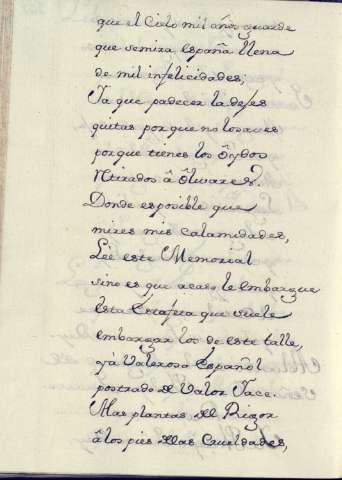 que el Cielo mil años guarde
que semira España llena
de mil infelicidades;
Ya que padecer la dexes
quitas porque no lo saves
porque tienes los Oydos
Retirados â Olivares?
Donde esposible que
mires mis calamidades,
Leè este Memorial
sino es que acaso le embargue
esta Estafeta que suele
embargar los de este talle,
yà Valeroso Español
postrado de Valor Yace.
A las plantas del Rigor
â los pies de las Crueldades,